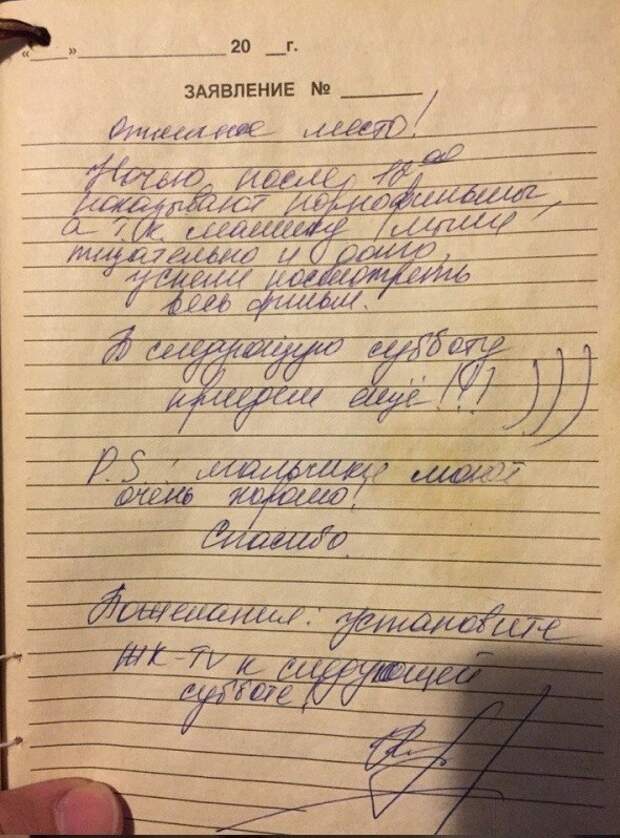 «___» ____________ 20 __г.
ЗАЯВЛЕНИЕ № ________
Отличное место!
Ночью после 12 00
показывают порнофильмы,
а т.к. машину мыли
тщательно и долго,
успели посмотреть
весь фильм.
В следующую субботу
приедем ещё!!! )))
P.S: мальчики моют
очень хорошо!
Спасибо.
Пожелания: установите
ЖК-TV к следующей
субботе!